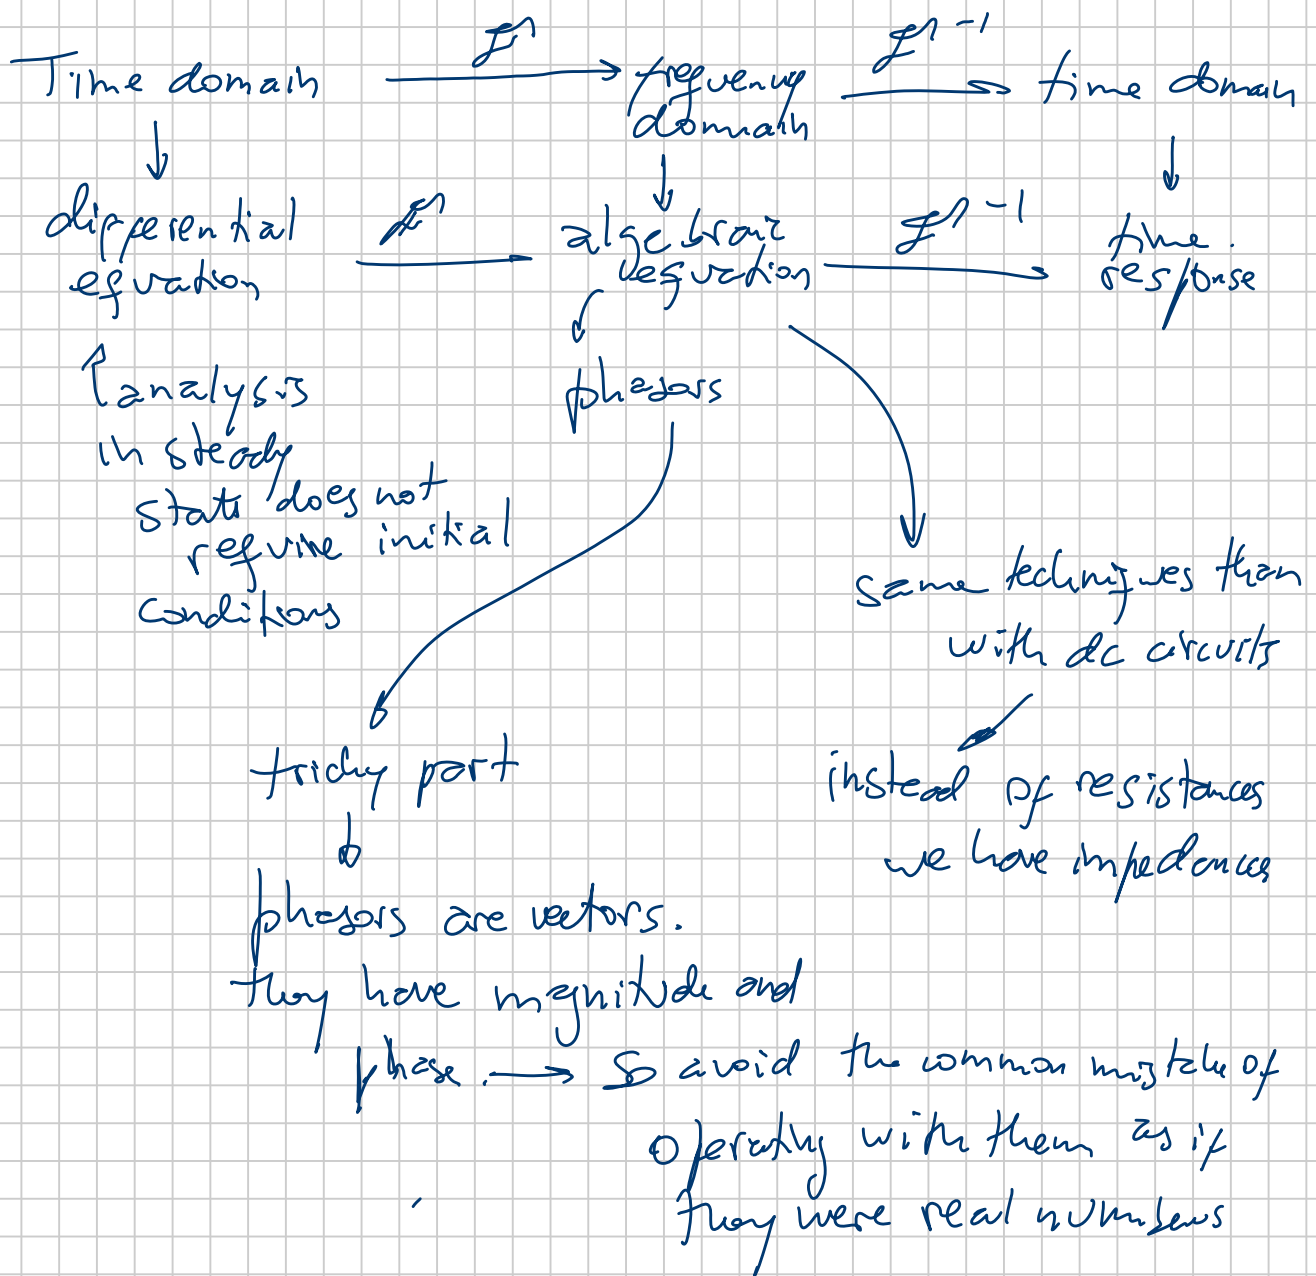 Time domain
F
frequency
domain
F -1
time domain
differential
equation
F
algebraic
equation
F -1
time
response
analysis
in steady
state does not
require initial
conditions
phasors
same techniques than
with dc circuits
instead of resistances
we have impedances
tricky part
phasors are vectors.
they have magnitude and
phase
so avoid the common mistake of
operating with them as if
they were real numbers